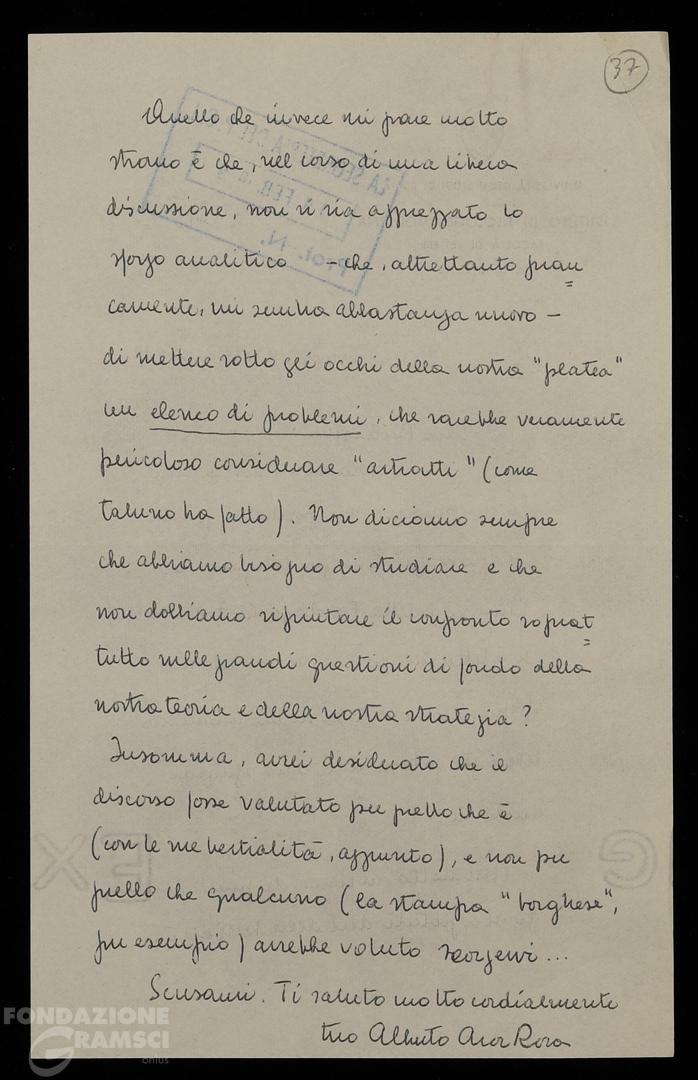 37
Quello che invece mi pare molto
strano è che, nel corso di una libera
discussione, non si sia apprezzato lo
sforzo analitico – che, altrettanto fran=
camente, mi sembra abbastanza nuovo –
di mettere sotto gli occhi della nostra "platea"
un elenco di problemi, che sarebbe veramente
pericoloso considerare "astratti" (come
taluno ha fatto). Non diciamo sempre
che abbiamo bisogno di studiare e che
non dobbiamo rifiutare il confronto soprat=
tutto sulle grandi questioni di fondo della
nostra teoria e della nostra strategia?
Insomma, avrei desiderato che il
discorso fosse valutato per quello che è
(con le sue bestialità, appunto), e non per
quello che qualcuno (la stampa "borghese",
per esempio) avrebbe voluto scorgervi...
Scusami. Ti saluto molto cordialmente
tuo Alberto Asor Rosa
FONDAZIONE
GRAMSCI
onlus